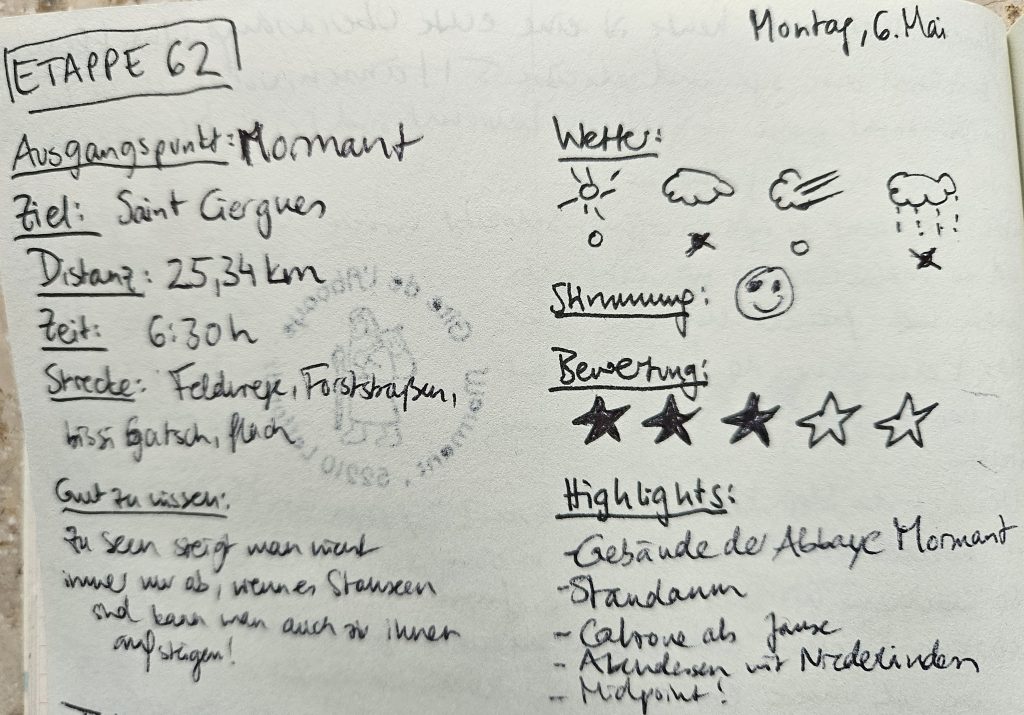 Montag, 6. Mai
ETAPPE 62
Ausgangspunkt: Mormant
Ziel: Saint Ciergues
Distanz: 25,34 km
Zeit: 6:30h
Strecke: Feldwege, Forststraßen,
bissi Gatsch, flach
Gut zu wissen:
Zu Seen steigt man nicht
immer nur ab, wenn es Stauseen
sind kann man auch zu ihnen
aufsteigen!
Wetter:
Stimmung:
Bewertung:
Highlights:
- Gebäude der Abbaye Mormant
- Staudamm
- als Jause
- Abendessen mit Niederländern
- Midpoint!
Gîte de l'Abbaye
Mormant, 52210